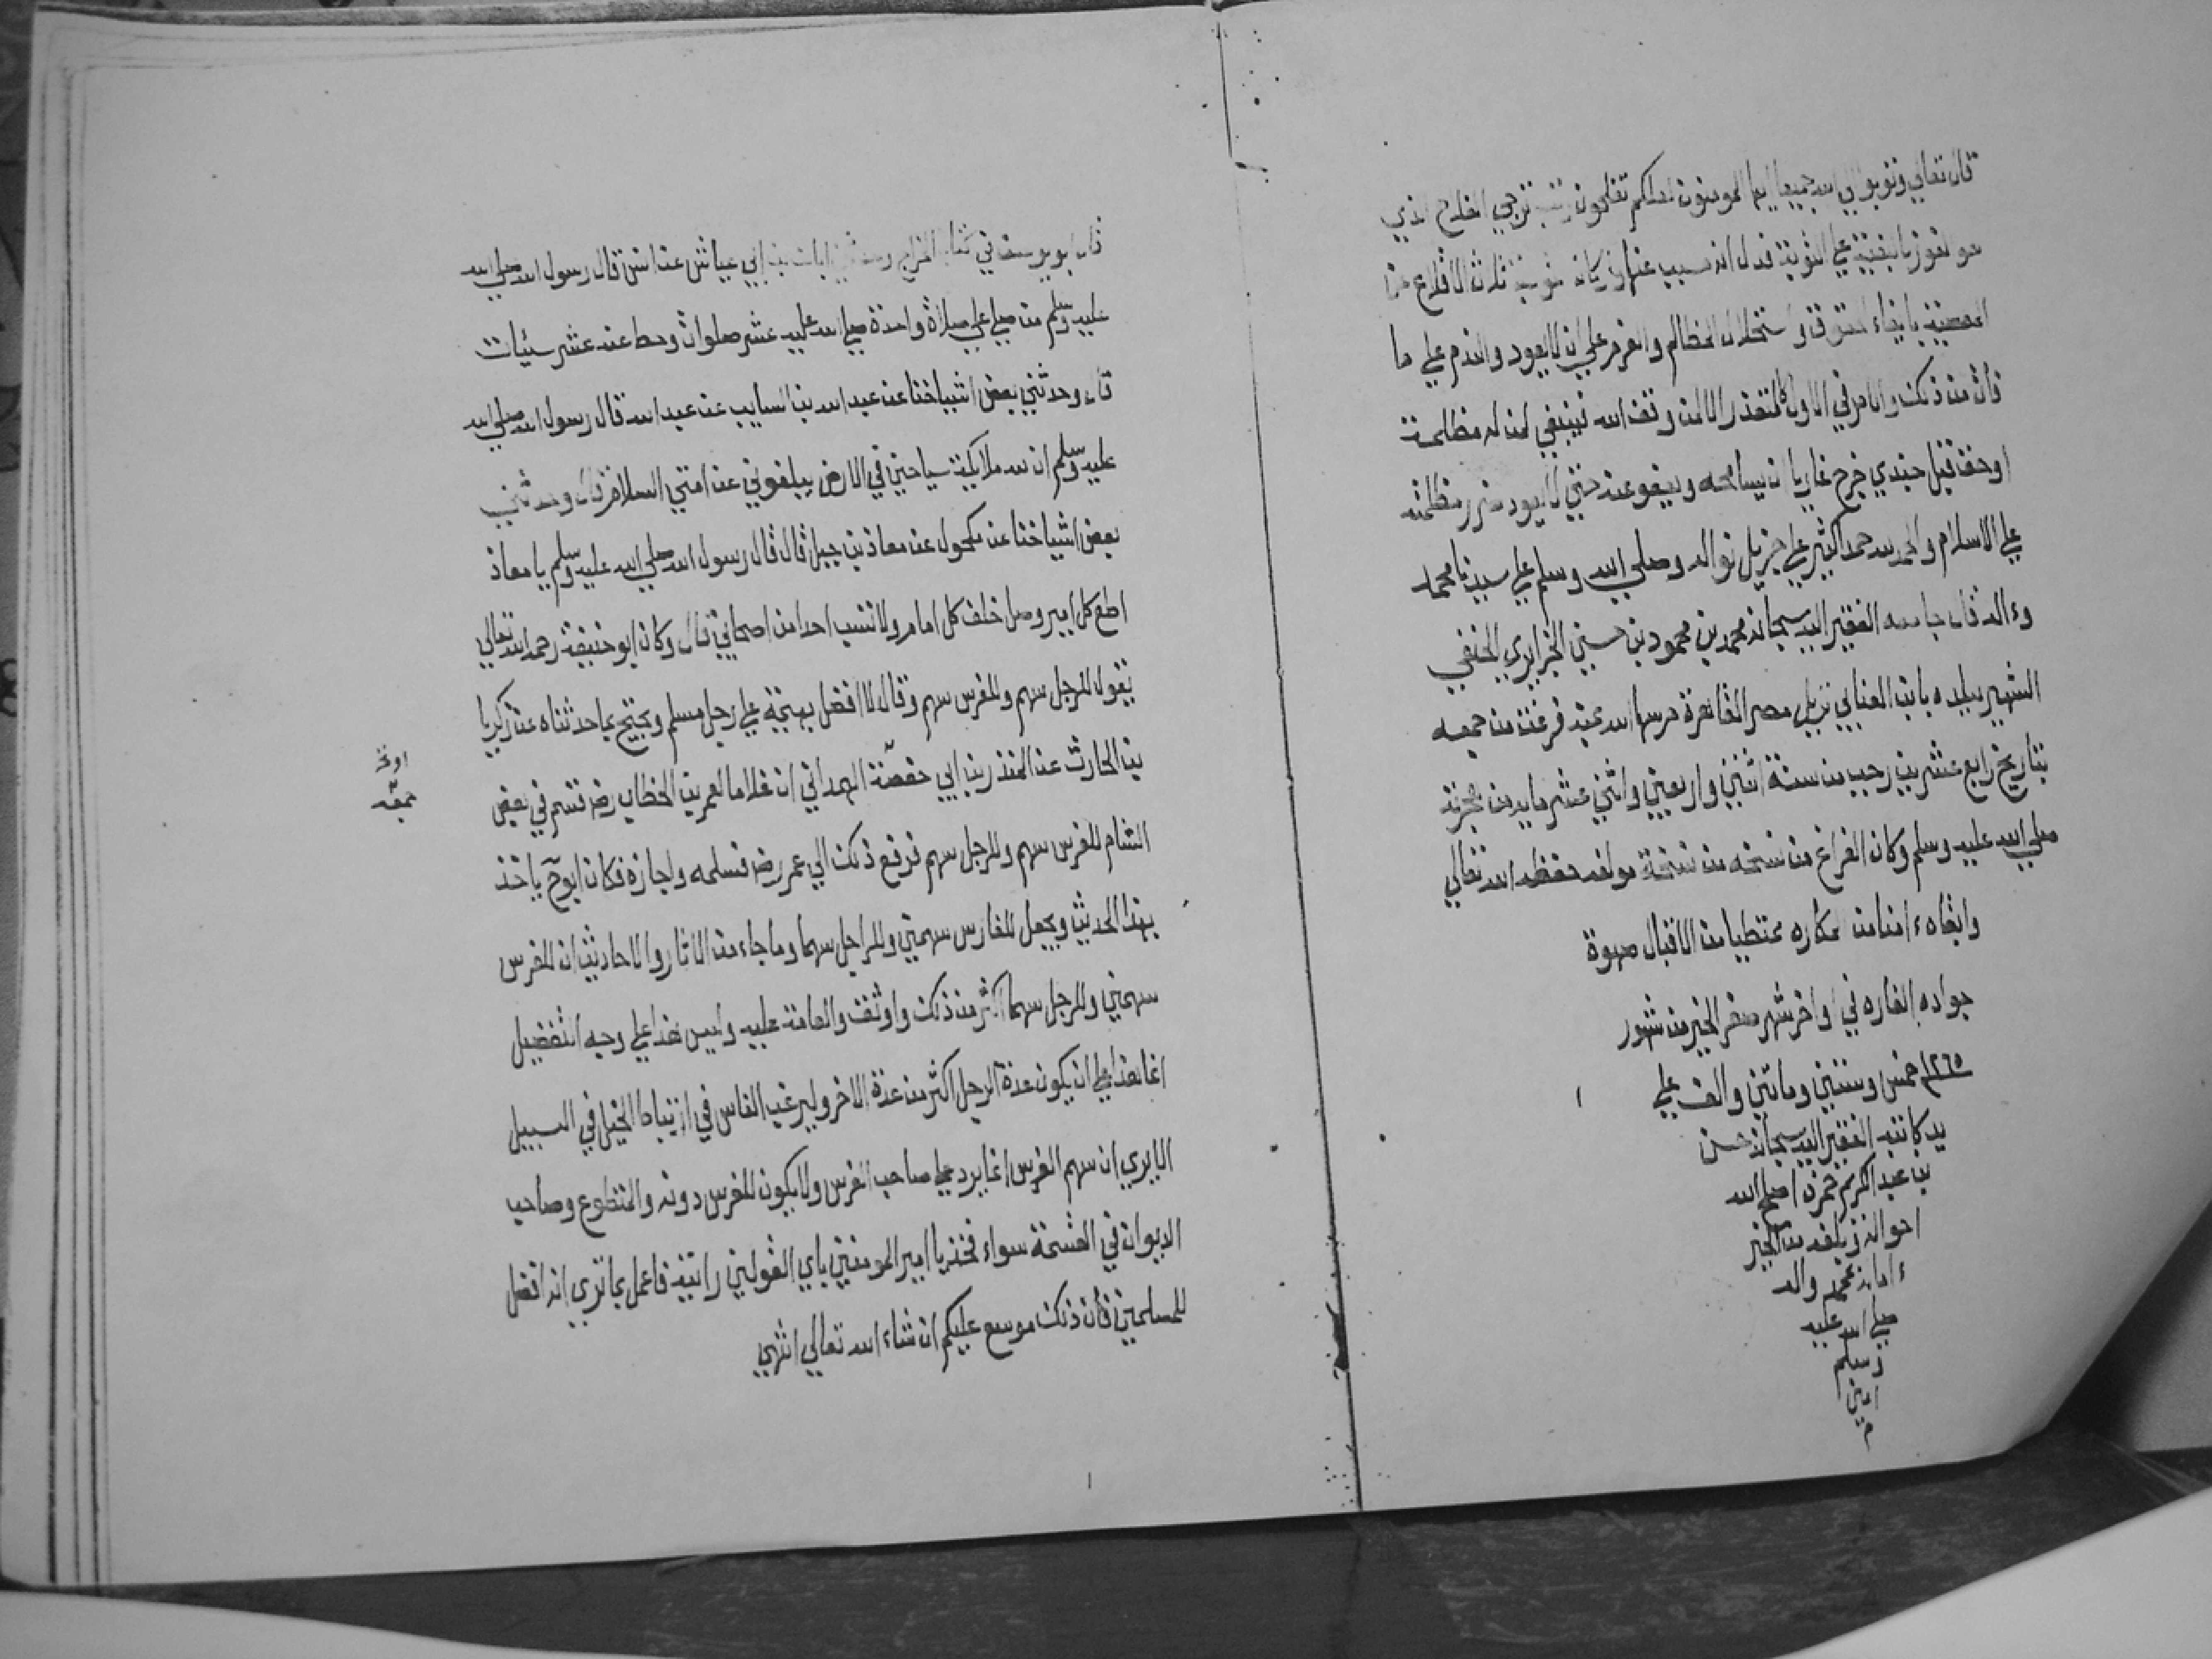 قال تعالي وتوبوا الي الله جميعا ايها المومنون لعلكم تفلحون ترجي الفلاح الذي
هو الفوز بالبغية علي التوبة فدل انه سبب عنها
المعصية بايفاء الحقوق واستحلال المظالم والعزم علي ان لا يعود والندم علي ما
فات من ذلك والامر في الاول كالمتعذر الا لمن وفقه الله فينبغي لمن له مظلمة
اوحق قبل جندي خرج غازيا ان يسامحه ويعفو عنه حتي لا يعود ضرر مظلمته
علي الاسلام والحمد لله حمدا كثيرا علي جزيل نواله وصلي الله وسلم علي سيدنا محمد
وءاله قال جامعه الفقير اليه سبحانه محمد بن محمود بن حسين الجزايري الحنفي
الشهير ببلده بابن العنابي نزيل مصر القاهرة حرسها الله عنه فرغت من جمعه
بتاريخ رابع عشر من رجب من سنة اثنين واربعين واثني عشر مايه من هجرته
صلي الله عليه وسلم وكان الفراغ من نسخه من نسخة مولفه حفظه الله تعالي
وابقاه ءامنا من مكاره ممتطيا من الاقبال صهوة
جواده الفاره في اواخر شهر صفر الخير من شهور
١٢٦٥ خمس وستين وماتين والف علي
يد كاتبه الفقير اليه سبحانه حسن
بن عبد الكريم حمزه اصلح الله
احواله وبلغه من الخير
ءاماله بمحمد واله
صلي الله عليه
وسلم
امين
م
قال ابو يوسف في كتاب الخراج وحدثني ابان بن ابي عياش عن انس قال رسول الله صلي الله
عليه وسلم من صلي علي صلاة واحدة صلي الله عليه عشر صلوات وحط عنه عشر سيئات
قال وحدثني بعض اشياخنا عن عبد الله بن السايب عن عبد الله قال رسول الله صلي الله
عليه وسلم ان لله ملايكة سياحين في الارض يبلغوني عن امتي السلام قال وحدثني
بعض اشياخنا عن مكحول عن معاذ بن جبل قال قال رسول الله صلي الله عليه وسلم يا معاذ
اطع كل امير وصل خلف كل امام ولا تسب احدا من اصحابي قال وكان ابو حنيفة رحمه الله تعالي
يقول للرجل سهم وللفرس سهم وقال لا افضل بهيمة علي رجل مسلم ويحتج بما حدثناه عن زكريا
بن الحارث عن المنذر بن ابي حفصة الهمداني ان غلاما لعمر بن الخطاب رض قسم في بعض
اوخم
حمصه
الشام للفرس سهم وللرجل سهم فرفع ذلك الي عمر رض فسلمه واجازه فكان ابو ح ياخذ
بهذا الحديث ويجعل للفارس سهمين وللراجل سهما وما جاء من الاثار والاحاديث ان للفرس
سهمين وللرجل سهما اكثر من ذلك واوثق والعامة عليه وليس هذا علي وجه التفضيل
انما هذا علي ان يكون عدة الرجل اكثر من عدة الاخر وليرغب الناس في ارتباط الخيل في السبيل
الا يري ان سهم الفرس انما يرد علي صاحب الفرس ولا يكون للفرس دونه والمتطوع وصاحب
الديوان في القسمة سواء فخذ يا امير المومنين باي القولين رايته فاعمل بما تري انه افضل
للمسلمين فان ذلك موسع عليكم ان شاء الله تعالي انتهي